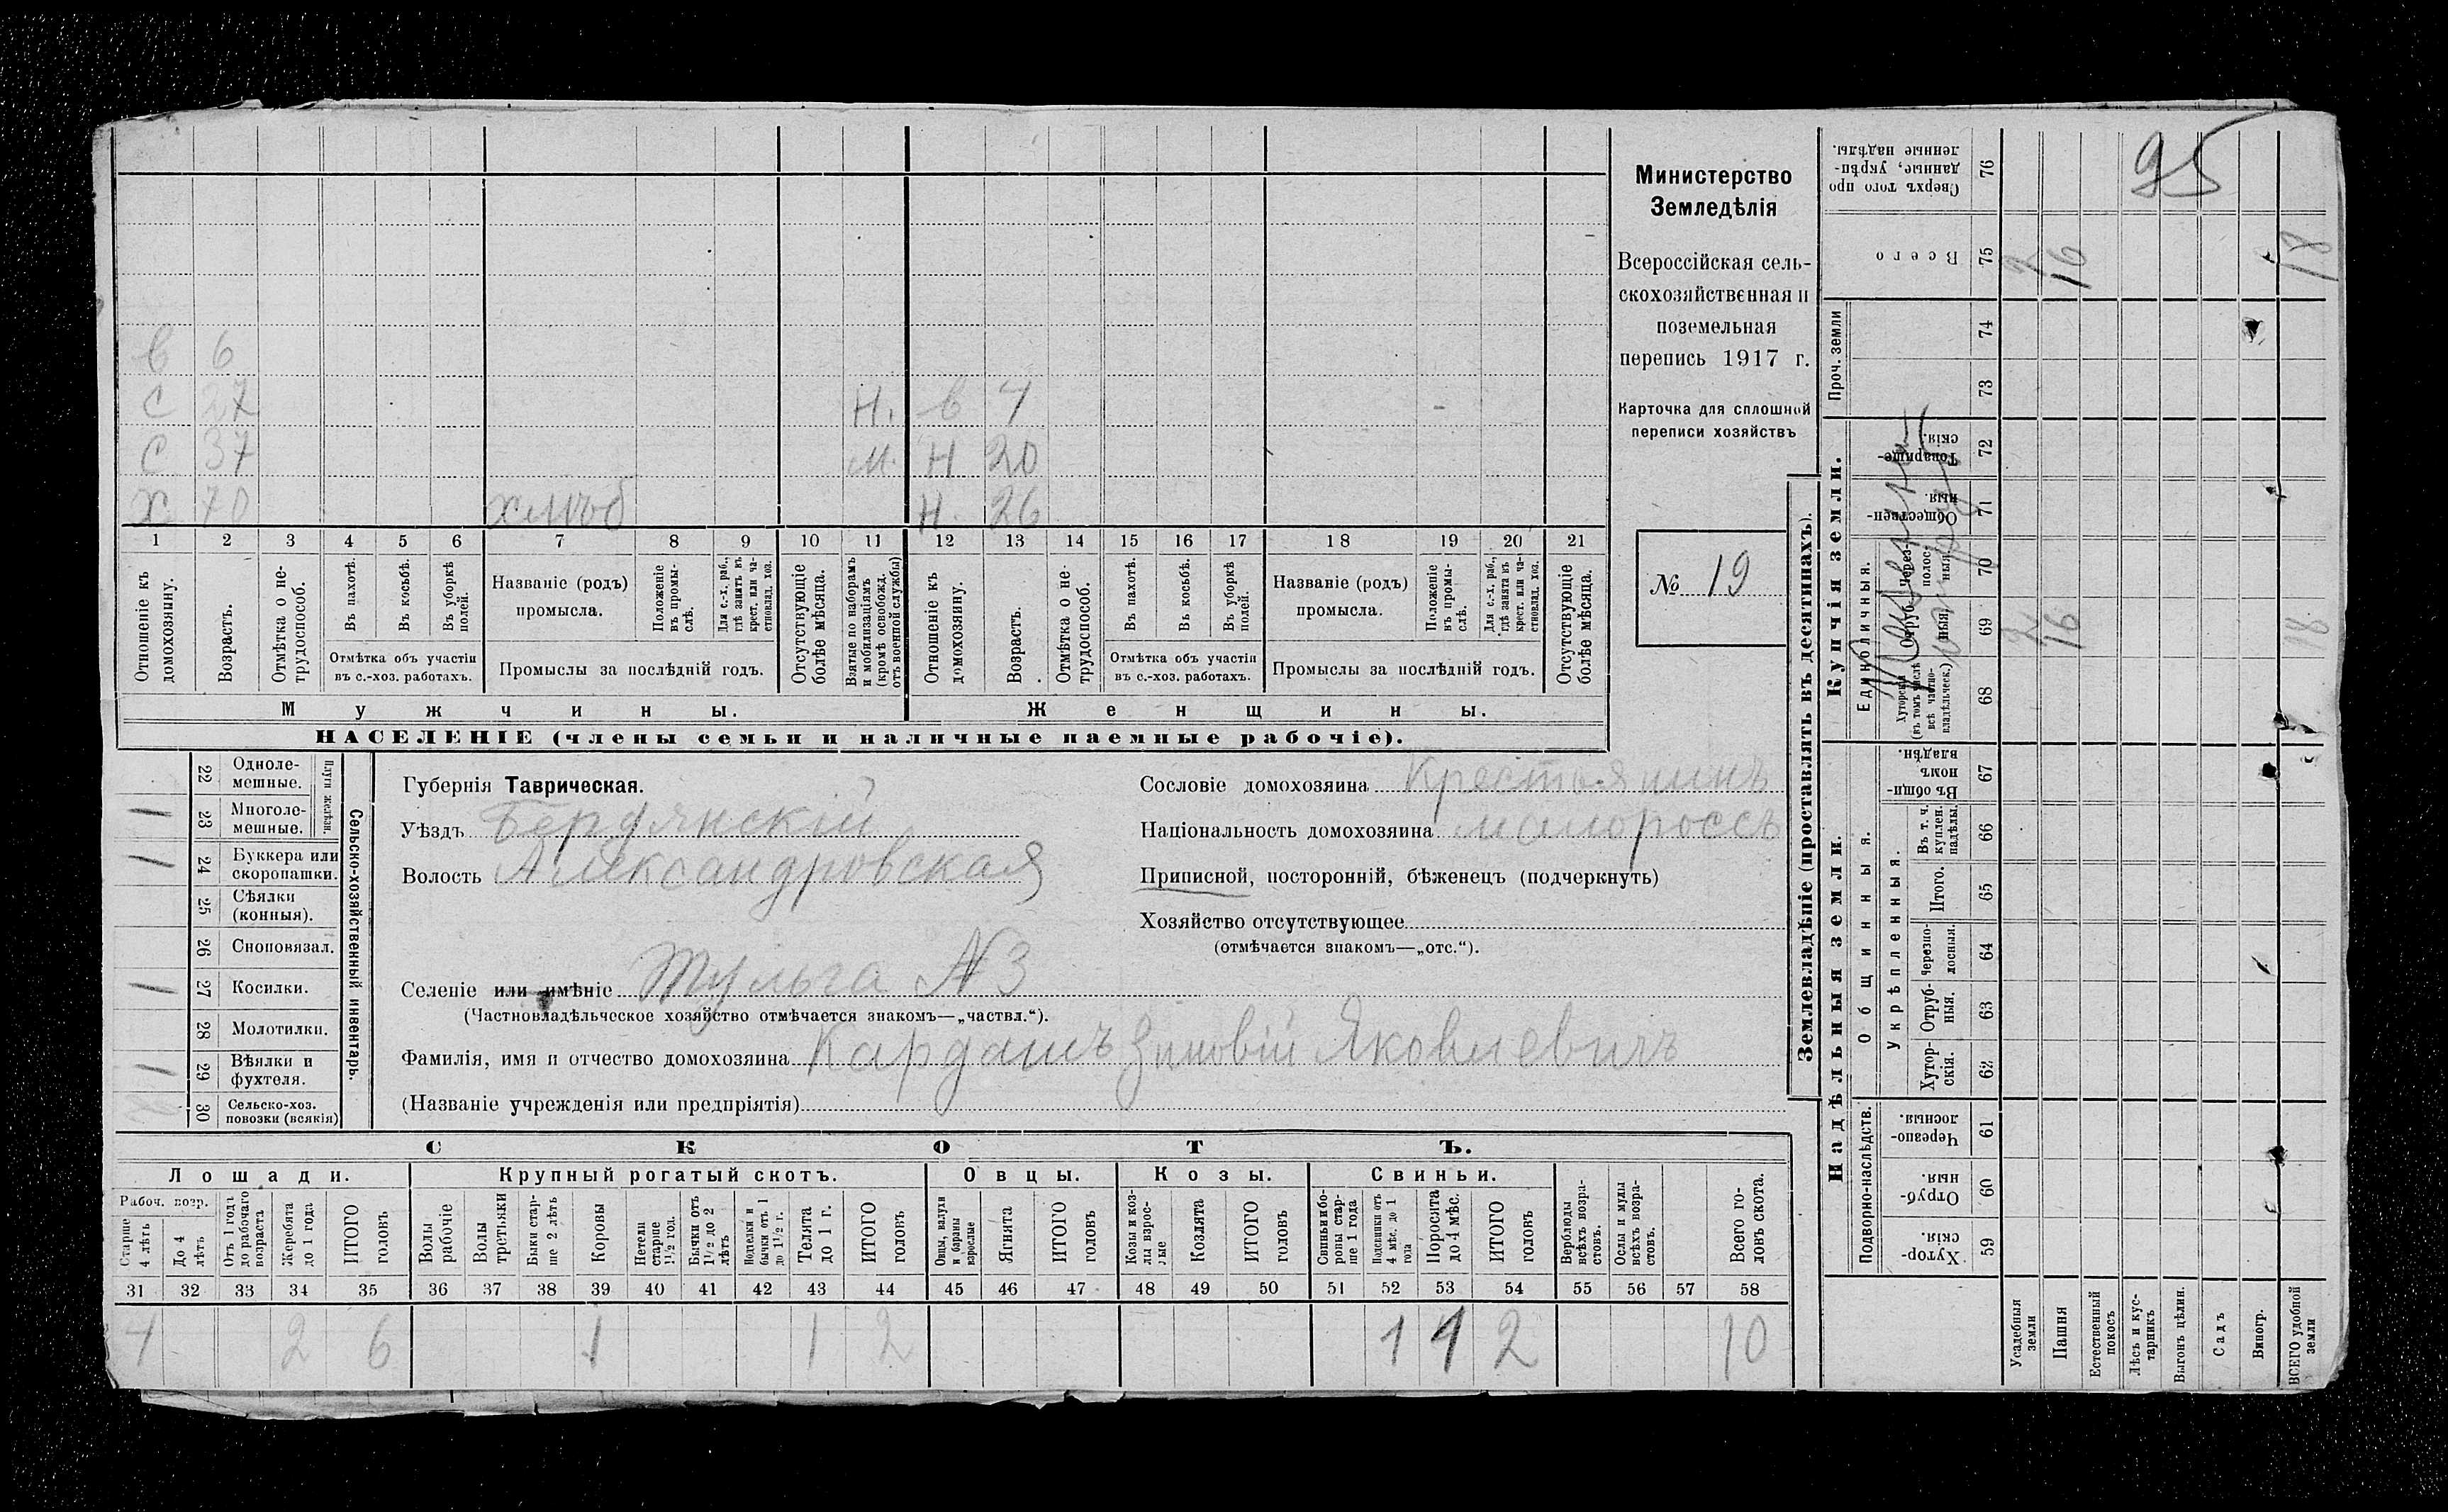 в 6
с 27 Н. в 7
с 37 М. Н 20
х 70 хлѣб Н. 26
1 2 3 4 5 6 7 8 9 10 11 12 13 14 15 16 17 18 19 20 21
Отношеніе къ домохозяину.
Возрастъ.
Отмѣтка о нетрудоспособ.
Въ пахотѣ.
Въ косьбѣ.
Въ уборкѣ полей.
Отмѣтка объ участіи
въ с.-хоз. работахъ.
Названіе (родъ)
промысла.
Положеніе въ промыслѣ.
Для с.-х. раб., гдѣ занятъ въ крест. или частновлад. хоз.
Промыслы за послѣдній годъ.
Отсутствующіе болѣе мѣсяца.
Взятые по наборамъ и мобилизаціямъ (кромѣ освобожд. отъ военной службы)
Отношеніе къ домохозяину.
Возрастъ.
Отмѣтка о нетрудоспособ.
Въ пахотѣ.
Въ косьбѣ.
Въ уборкѣ полей.
Отмѣтка объ участіи
въ с.-хоз. работахъ.
Названіе (родъ)
промысла.
Положеніе въ промыслѣ.
Для с.-х. раб., гдѣ занятъ въ крест. или частновлад. хоз.
Промыслы за послѣдній годъ.
Отсутствующіе болѣе мѣсяца.
Мужчины. Женщины.
НАСЕЛЕНІЕ (члены семьи и наличные наемные рабочіе).
Министерство
Земледѣлія
Всероссійская сель-
скохозяйственная и
поземельная
перепись 1917 г.
Карточка для сплошной
переписи хозяйствъ
№ 19
22 Одноле-
мешные.
1 23 Многоле-
мешные.
Плуги желѣзн.
1 24 Буккера или
скоропашки.
25 Сѣялки
(конныя).
26 Сноповязал.
1 27 Косилки.
28 Молотилки.
1 29 Вѣялки и
фухтеля.
30 Сельско-хоз.
повозки (всякія)
Сельско-хозяйственный инвентарь.
Губернія Таврическая.
Уѣздъ Бердянскій
Волость Александровская
Селеніе или имѣніе Тульга № 3
(Частновладѣльческое хозяйство отмѣчается знакомъ—„частвл.“).
Фамилія, имя и отчество домохозяина Кардашъ Зиновій Яковлевичъ
(Названіе учрежденія или предпріятія)
Сословіе домохозяина Крестьянинъ
Національность домохозяина малороссъ
Приписной, посторонній, бѣженецъ (подчеркнуть)
Хозяйство отсутствующее
(отмѣчается знакомъ—„отс.“).
СКОТЪ.
Лошади. Крупный рогатый скотъ. Овцы. Козы. Свиньи.
Рабоч. возр.
Старше 4 лѣтъ
До 4 лѣтъ
Отъ 1 года до рабочаго возраста
Жеребята до 1 года
ИТОГО головъ
Волы рабочіе
Волы третьяки
Быки старше 2 лѣтъ
Коровы
Нетели старше 1 1/2 год.
Бычки отъ 1 1/2 до 2 лѣтъ
Нетели и бычки отъ 1 до 1 1/2 г.
Телята до 1 г.
ИТОГО головъ
Овцы, валухи и бараны взрослые
Ягнята
ИТОГО головъ
Козы и козлы взрослые
Козлята
ИТОГО головъ
Свиньи и боровы старше 1 года
Подсвинки отъ 4 мѣс. до 1 года
Поросята до 4 мѣс.
ИТОГО головъ
Верблюды всѣхъ возрастовъ.
Ослы и мулы всѣхъ возрастовъ.
Всего головъ скота.
31 32 33 34 35 36 37 38 39 40 41 42 43 44 45 46 47 48 49 50 51 52 53 54 55 56 57 58
4 2 6 1 1 2 1 1 2 10
Землевладѣніе (проставлять въ десятинахъ).
Надѣльныя земли.
Купчія земли.
Подворно-наслѣдств.
Общинныя.
Укрѣпленныя.
Единоличныя.
Проч. земли
Сверхъ того проданные, укрѣпленные надѣлы. 76
Всего 75 2 16 18
74
73
Товарищескія. 72
Общественныя. 71
Черезполосныя. 70
Отрубныя. 69 2 16 18
Хуторскія (въ томъ числѣ всѣ частновладѣльческ.) 68
Въ общинномъ владѣн. 67
Въ т. ч. куплен. надѣлы. 66
Итого. 65
Черезполосныя. 64
Отрубныя. 63
Хуторскія. 62
Черезполосныя. 61
Отрубныя. 60
Хуторскія. 59
95
Усадебныя земли
Пашня
Естественный покосъ
Лѣсъ и кустарникъ
Выгонъ цѣлин.
Садъ
Виногр.
ВСЕГО удобной земли